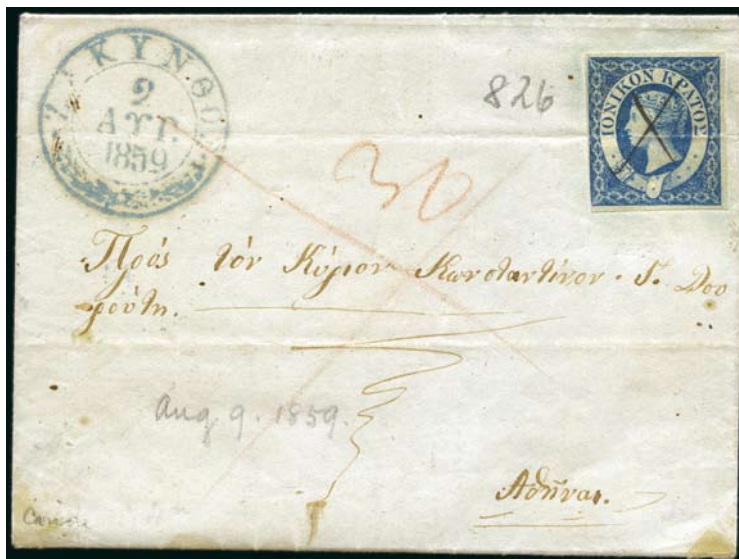 ΖΑΚΥΝΘΟΣ
9
ΑΥΓ.
1859
826
ΙΟΝΙΚΟΝ ΚΡΑΤΟΣ
30
Πρός τόν Κύριον Κωνσταντίνον. Δου
ρούτη.
Aug 9. 1859.
Αθήναι.